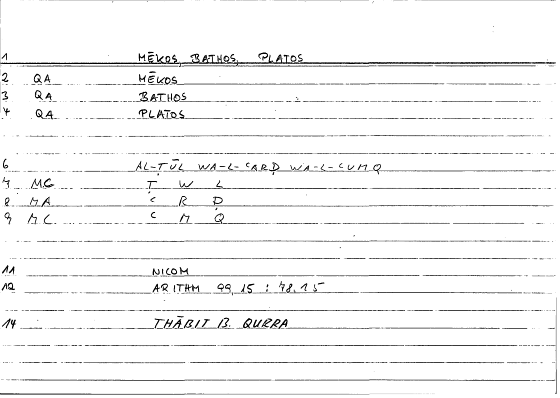 1 MĒKOS, BATHOS, PLATOS
2 QA MĒKOS
3 QA BATHOS
4 QA PLATOS
6 AL-ṬŪL WA-L-ʿARḌ WA-L-ʿUMQ
7 MC Ṭ W L
8 MA ʿ R Ḍ
9 MC ʿ M Q
11 NICOM
12 ARITHM 99,15 : 78,15
14 THĀBIT B. QURRA